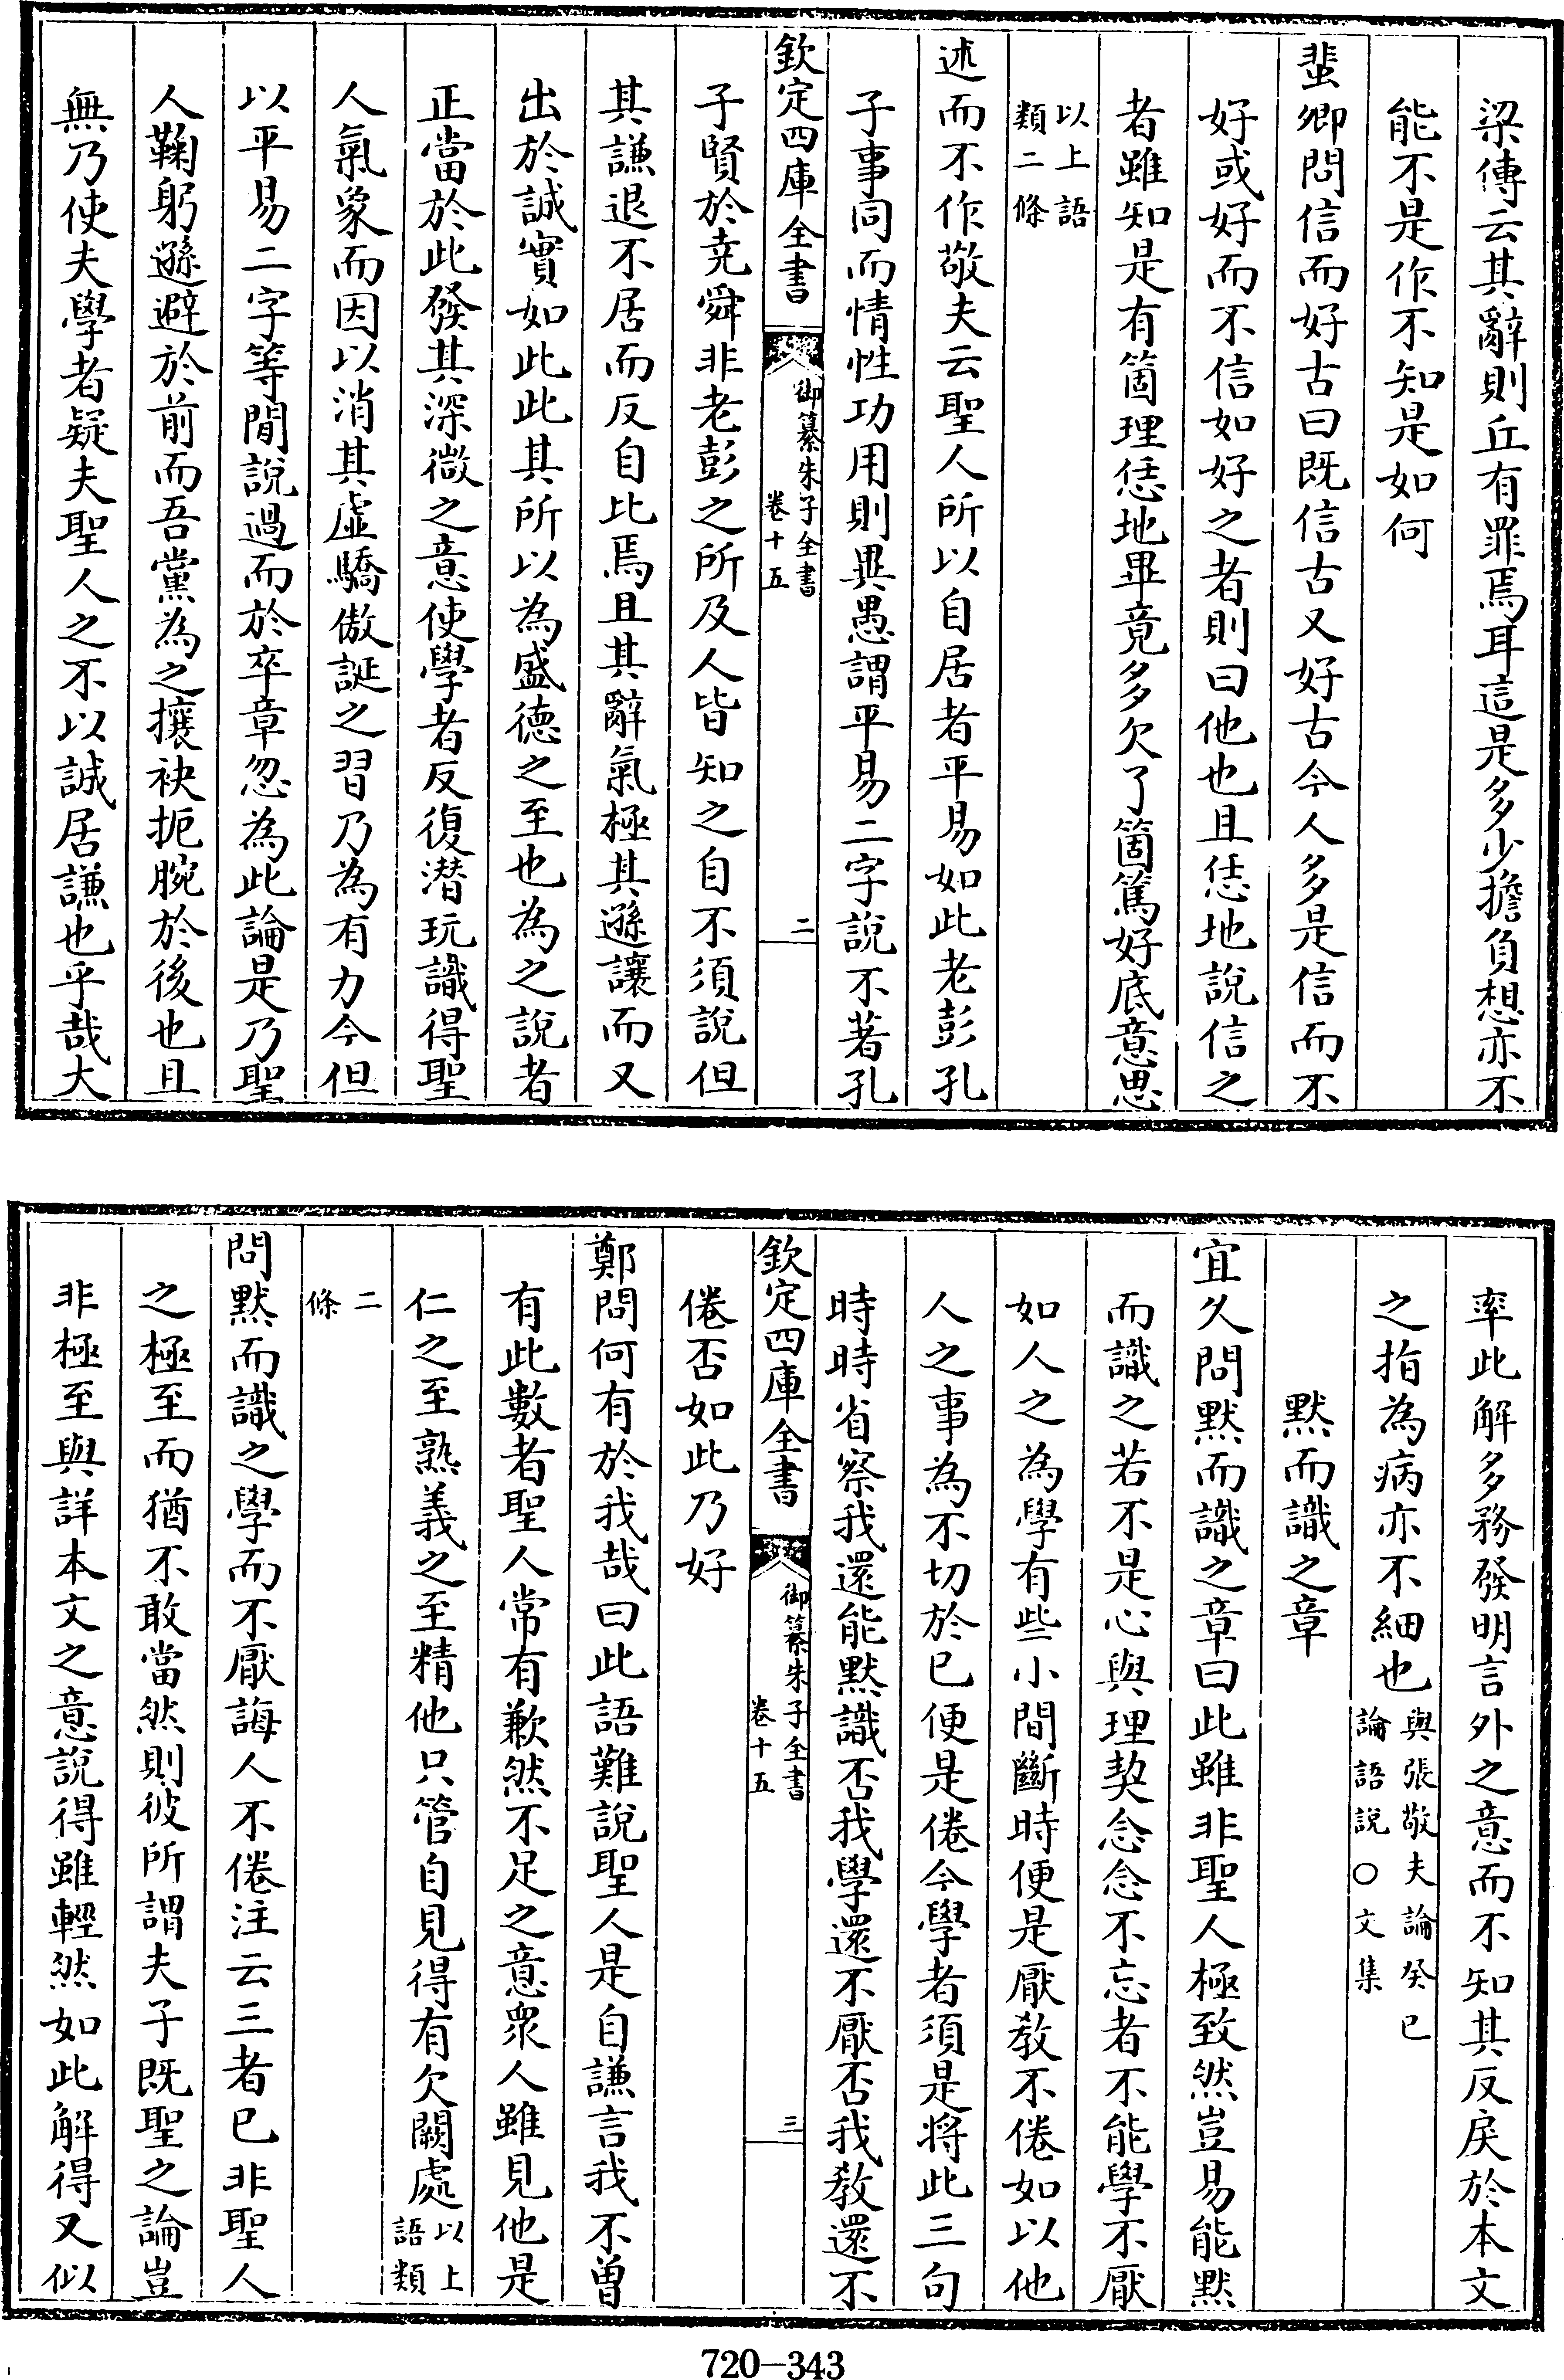 梁傳云其辭則丘有罪焉耳這是多少擔負想亦不
能不是作不知是如何
蜚卿問信而好古曰既信古又好古今人多是信而不
好或好而不信如好之者則曰他也且恁地說信之
者雖知是有箇理恁地畢竟多欠了箇篤好底意思
以上語
類二條
述而不作敬夫云聖人所以自居者平易如此老彭孔
子事同而情性功用則異愚謂平易二字說不著孔
欽定四庫全書
御纂朱子全書
卷十五
二
子賢於堯舜非老彭之所及人皆知之自不須說但
其謙退不居而反自比焉且其辭氣極其遜讓而又
出於誠實如此此其所以為盛德之至也為之說者
正當於此發其深微之意使學者反復潜玩識得聖
人氣象而因以消其虛驕傲誕之習乃為有力今但
以平易二字等閒說過而於卒章忽為此論是乃聖
人鞠躬遜避於前而吾黨為之攘袂扼腕於後也且
無乃使夫學者疑夫聖人之不以誠居謙也乎哉大
率此解多務發明言外之意而不知其反戾於本文
之指為病亦不細也
與張敬夫論癸巳
論語說○文集
默而識之章
宜久問默而識之章曰此雖非聖人極致然豈易能默
而識之若不是心與理契念念不忘者不能學不厭
如人之為學有些小間斷時便是厭教不倦如以他
人之事為不切於已便是倦今學者須是將此三句
時時省察我還能默識否我學還不厭否我教還不
欽定四庫全書
御纂朱子全書
卷十五
三
倦否如此乃好
鄭問何有於我哉曰此語難說聖人是自謙言我不曽
有此數者聖人常有歉然不足之意衆人雖見他是
仁之至熟義之至精他只管自見得有欠闕處
以上
語類
二
條
問默而識之學而不厭誨人不倦注云三者已非聖人
之極至而猶不敢當然則彼所謂夫子既聖之論豈
非極至與詳本文之意說得雖輕然如此解得又似
720-343